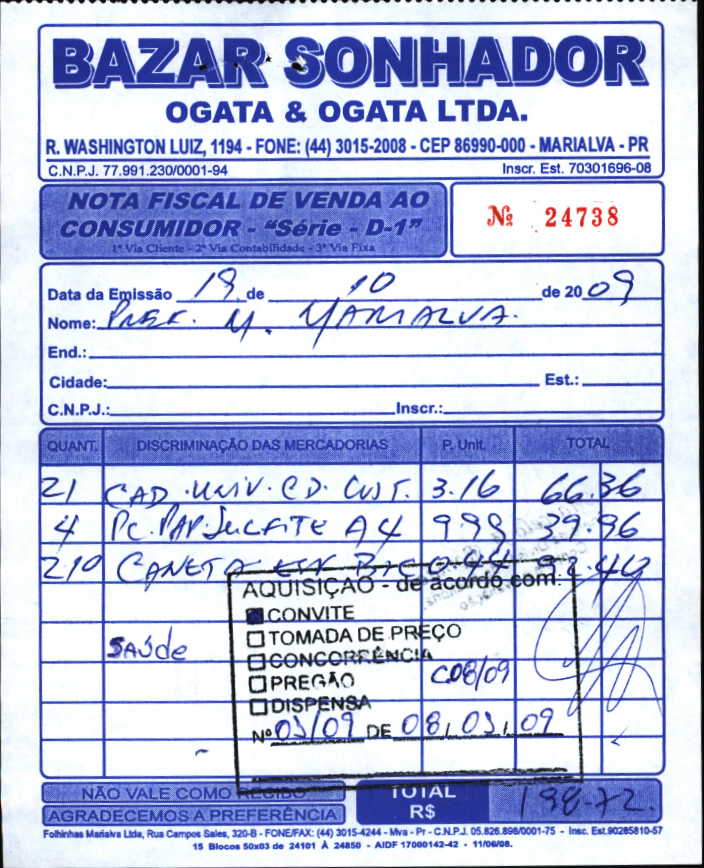 BAZAR SONHADOR
OGATA & OGATA LTDA.
R. WASHINGTON LUIZ, 1194 - FONE: (44) 3015-2008 - CEP 86990-000 - MARIALVA - PR
C.N.P.J. 77.991.230/0001-94 Inscr. Est. 70301696-08
NOTA FISCAL DE VENDA AO
CONSUMIDOR - "Série - D-1"
1ª Via Cliente - 2ª Via Contabilidade - 3ª Via Fixa
Nº 24738
Data da Emissão 19 de 10 de 2009
Nome: PREF. M. MARIALVA.
End.:
Cidade: Est.:
C.N.P.J.: Inscr.:
QUANT. DISCRIMINAÇÃO DAS MERCADORIAS P. Unit. TOTAL
21 CAD. UNIV. CD. CUST. 3.16 66.36
4 PC. PAP. SULFITE A4 9.99 39.96
210 CANETA BIC 0.44 92.40
AQUISIÇÃO - de acordo com:
CONVITE
TOMADA DE PREÇO
Saúde
CONCORRÊNCIA
PREGÃO C08/09
DISPENSA
Nº 03/09 DE 08, 03, 09
NÃO VALE COMO RECIBO
AGRADECEMOS A PREFERÊNCIA
TOTAL
R$ 198-72.
Folhinhas Marialva Ltda, Rua Campos Sales, 320-B - FONE/FAX: (44) 3015-4244 - Mva - Pr - C.N.P.J. 05.826.896/0001-75 - Insc. Est.90285810-57
15 Blocos 50x03 de 24101 À 24850 - AIDF 17000142-42 - 11/06/08.